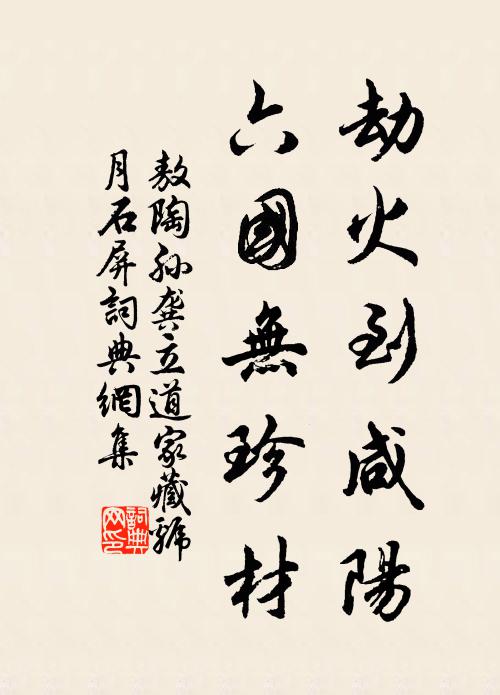 劫火到咸陽
六國無珍材
敖陶孙龔立道家藏號
月石屏詞典網集
詞典網印